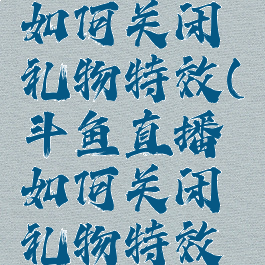 如何关闭
礼物特效(
斗鱼直播
如何关闭
礼物特效